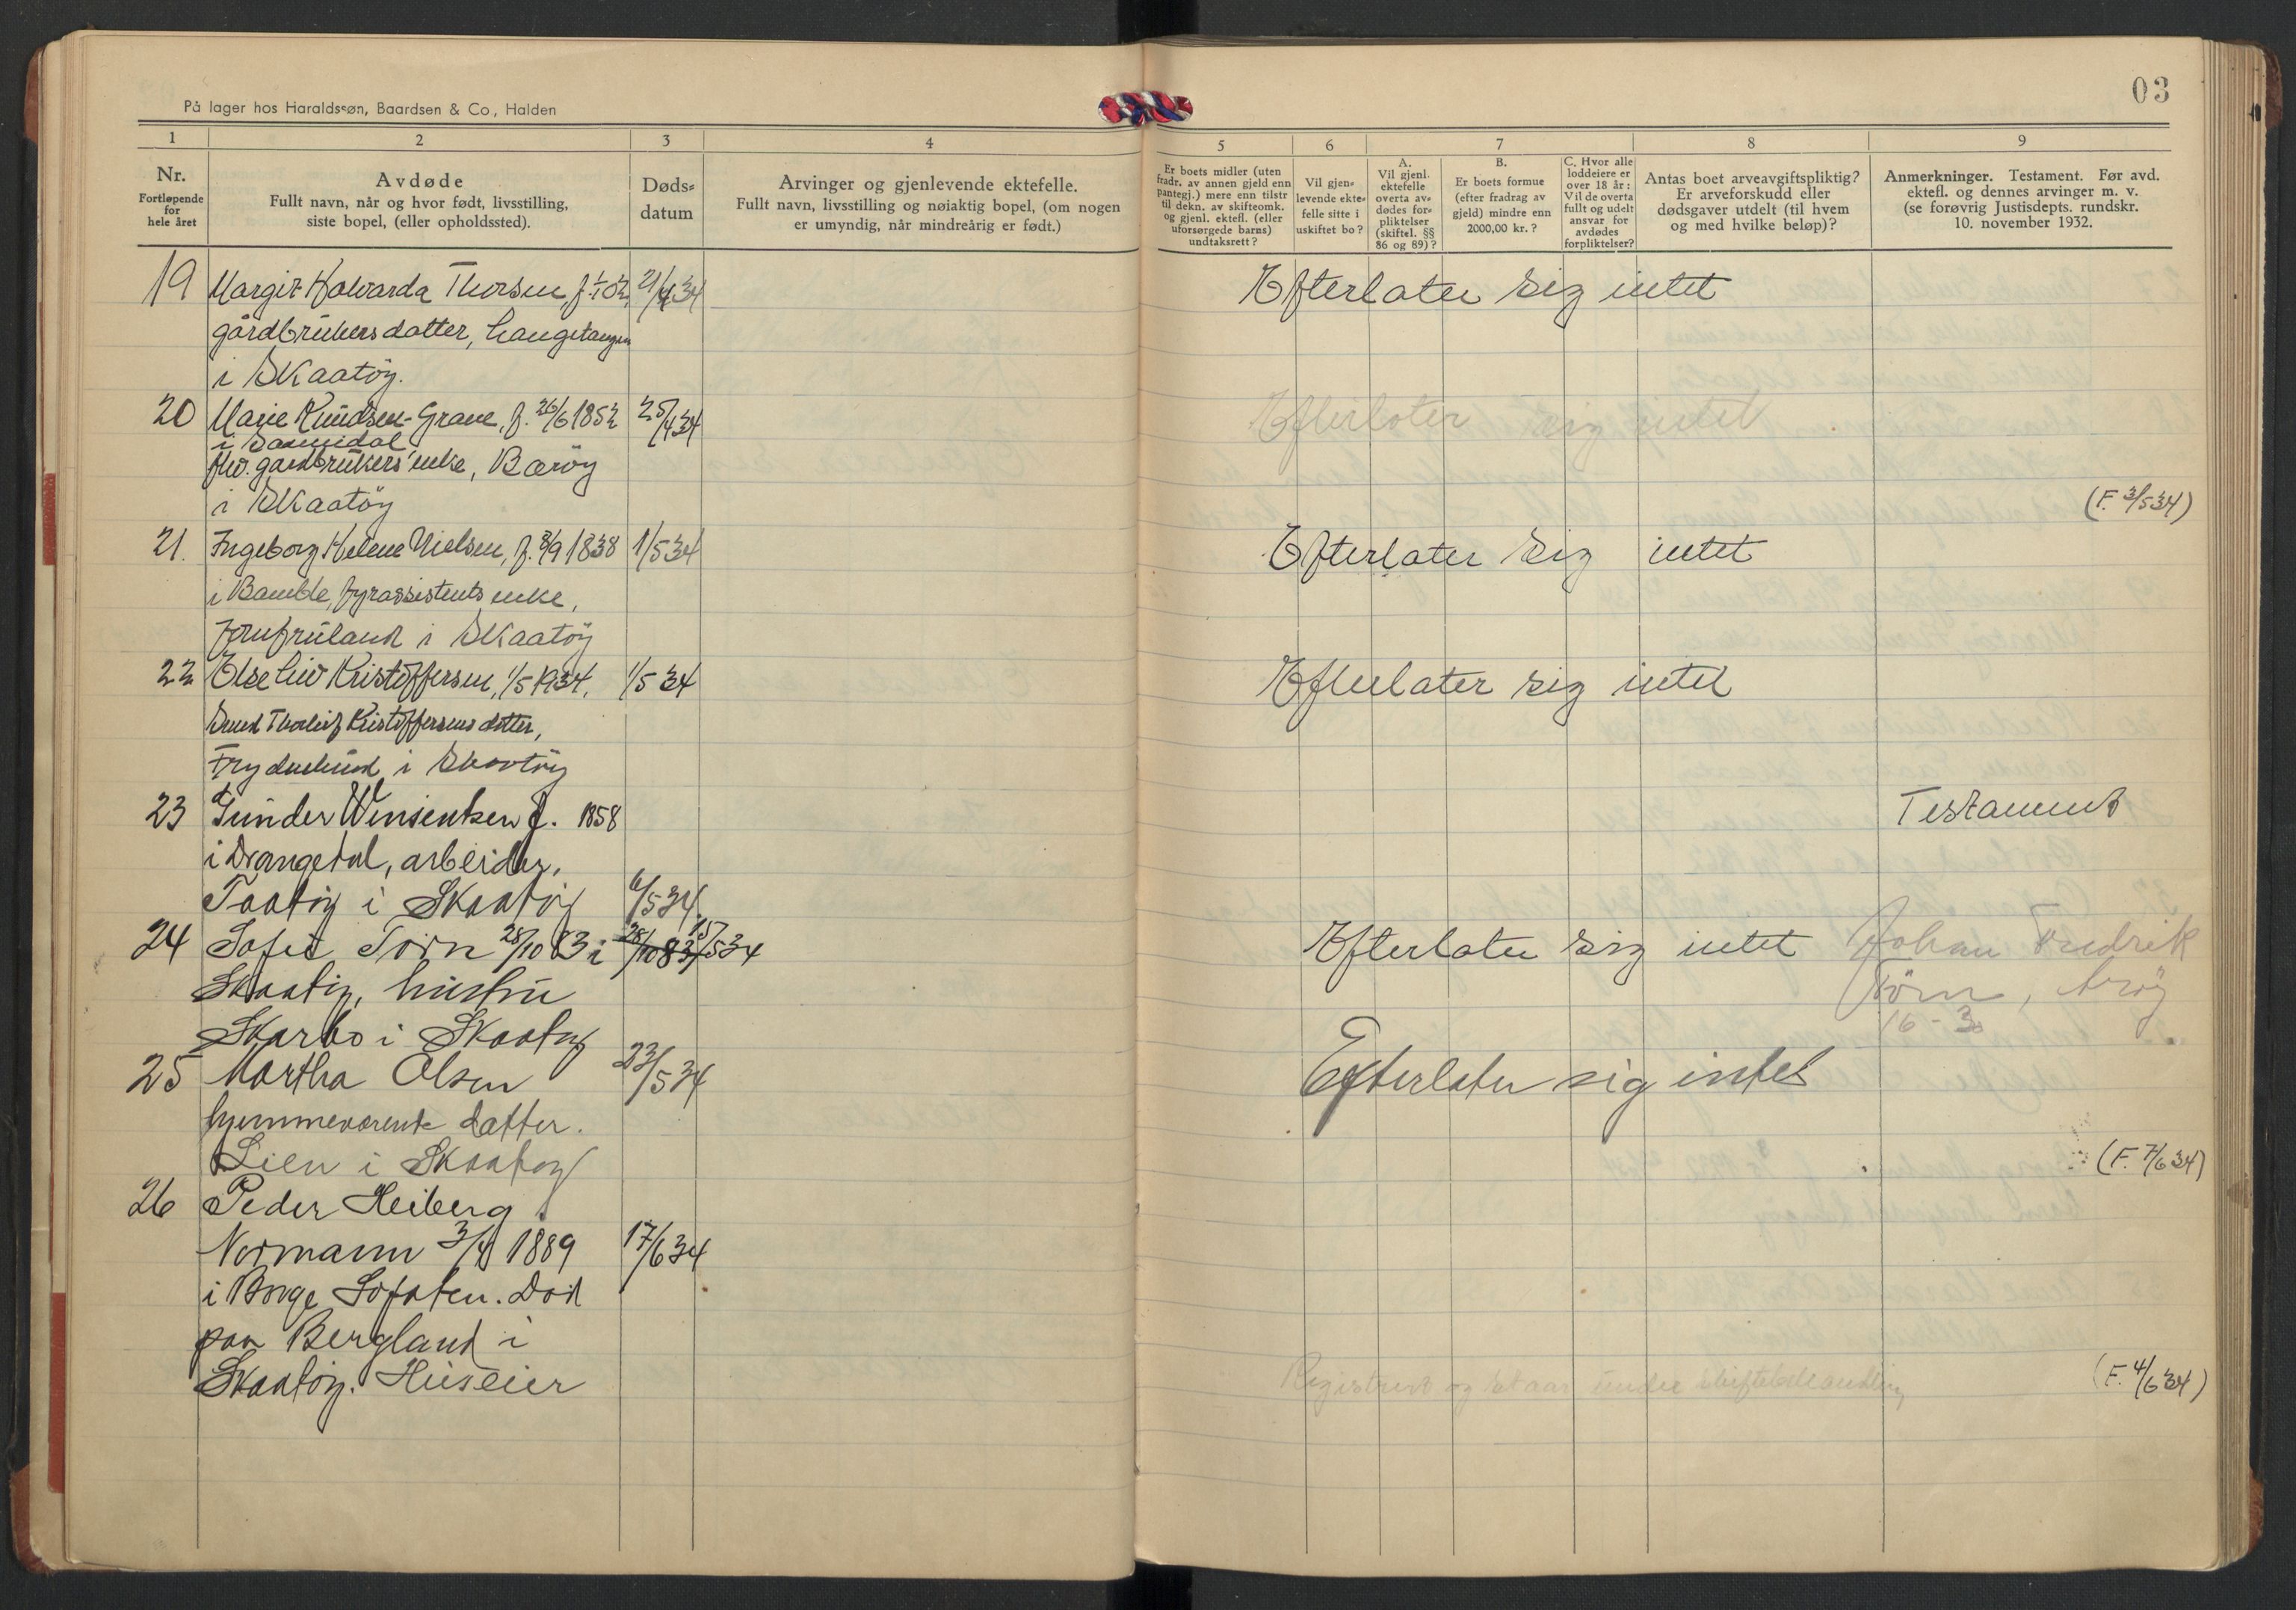 På lager hos Haraldssøn, Baardsen & Co., Halden
03
1
2
3
4
5
6
7
8
9
Nr.
Fortløpende
for
hele året
Avdøde
Fullt navn, når og hvor født, livsstilling,
siste bopel, (eller opholdssted).
Døds-
datum
Arvinger og gjenlevende ektefelle.
Fullt navn, livsstilling og nøiaktig bopel, (om nogen
er umyndig, når mindreårig er født.)
Er boets midler (uten
fradr. av annen gjeld enn
pantegj.) mere enn tilstr
til dekn. av skifteomk.
og gjenl. ektefl. (eller
uforsørgede barns)
undtaksrett?
Vil gjen-
levende ekte-
felle sitte i
uskiftet bo?
A.
Vil gjenl.
ektefelle
overta av-
dødes for-
pliktelser
(skiftel. §§
86 og 89)?
B.
Er boets formue
(efter fradrag av
gjeld) mindre enn
2000,00 kr.?
C. Hvor alle
loddeiere er
over 18 år:
Vil de overta
fullt og udelt
ansvar for
avdødes
forpliktelser?
Antas boet arveavgiftspliktig?
Er arveforskudd eller
dødsgaver utdelt (til hvem
og med hvilke beløp)?
Anmerkninger. Testament. Før avd.
ektefl. og dennes arvinger m. v.
(se forøvrig Justisdepts. rundskr.
10. november 1932.
19 Margit Halvarda Thorsen, f. 21/4 34 Efterlater sig intet
gårdbrukers datter, Langetangen
i Skaatøy.
20 Marie Knudsen-Grave, f. 26/6 1852 25/4 34 Efterlater sig intet
i Sannidal
fhv. gaardbrukers enke, Bærøy
i Skaatøy (F. 3/5 34)
21. Ingeborg Helene Nielsen, f. 8/9 1838 1/5 34 Efterlater sig intet
i Bamble, fyrassistents enke,
Jomfruland i Skaatøy
22 Else Liv Kristoffersen, 1/5 1934, 1/5 34 Efterlater sig intet
Thorleif Kristoffersens datter,
i Skaatøy
23 Gunder Winsentsen f. 1858 Testament
i Drangedal, arbeider,
Taatøy i Skaatøy 6/5 34
24 Sofie Törn 28/10 83 i 28/10 83 15/5 34 Efterlater sig intet Johan Fredrik
Skaatøy, hustru Törn, Arøy
Skarbo i Skaatøy 16-30
25 Martha Olsen 23/5 34 Efterlater sig intet
hjemmeværende datter.
Lien i Skaatøy (F. 7/6 34)
26 Peder Heiberg
Normann 3/4 1889 17/6 34
i Borge Lofoten. Död
paa Bergland i
Skaatøy. Huseier Registrert og staar under skiftebehandling, (F. 4/6 34)